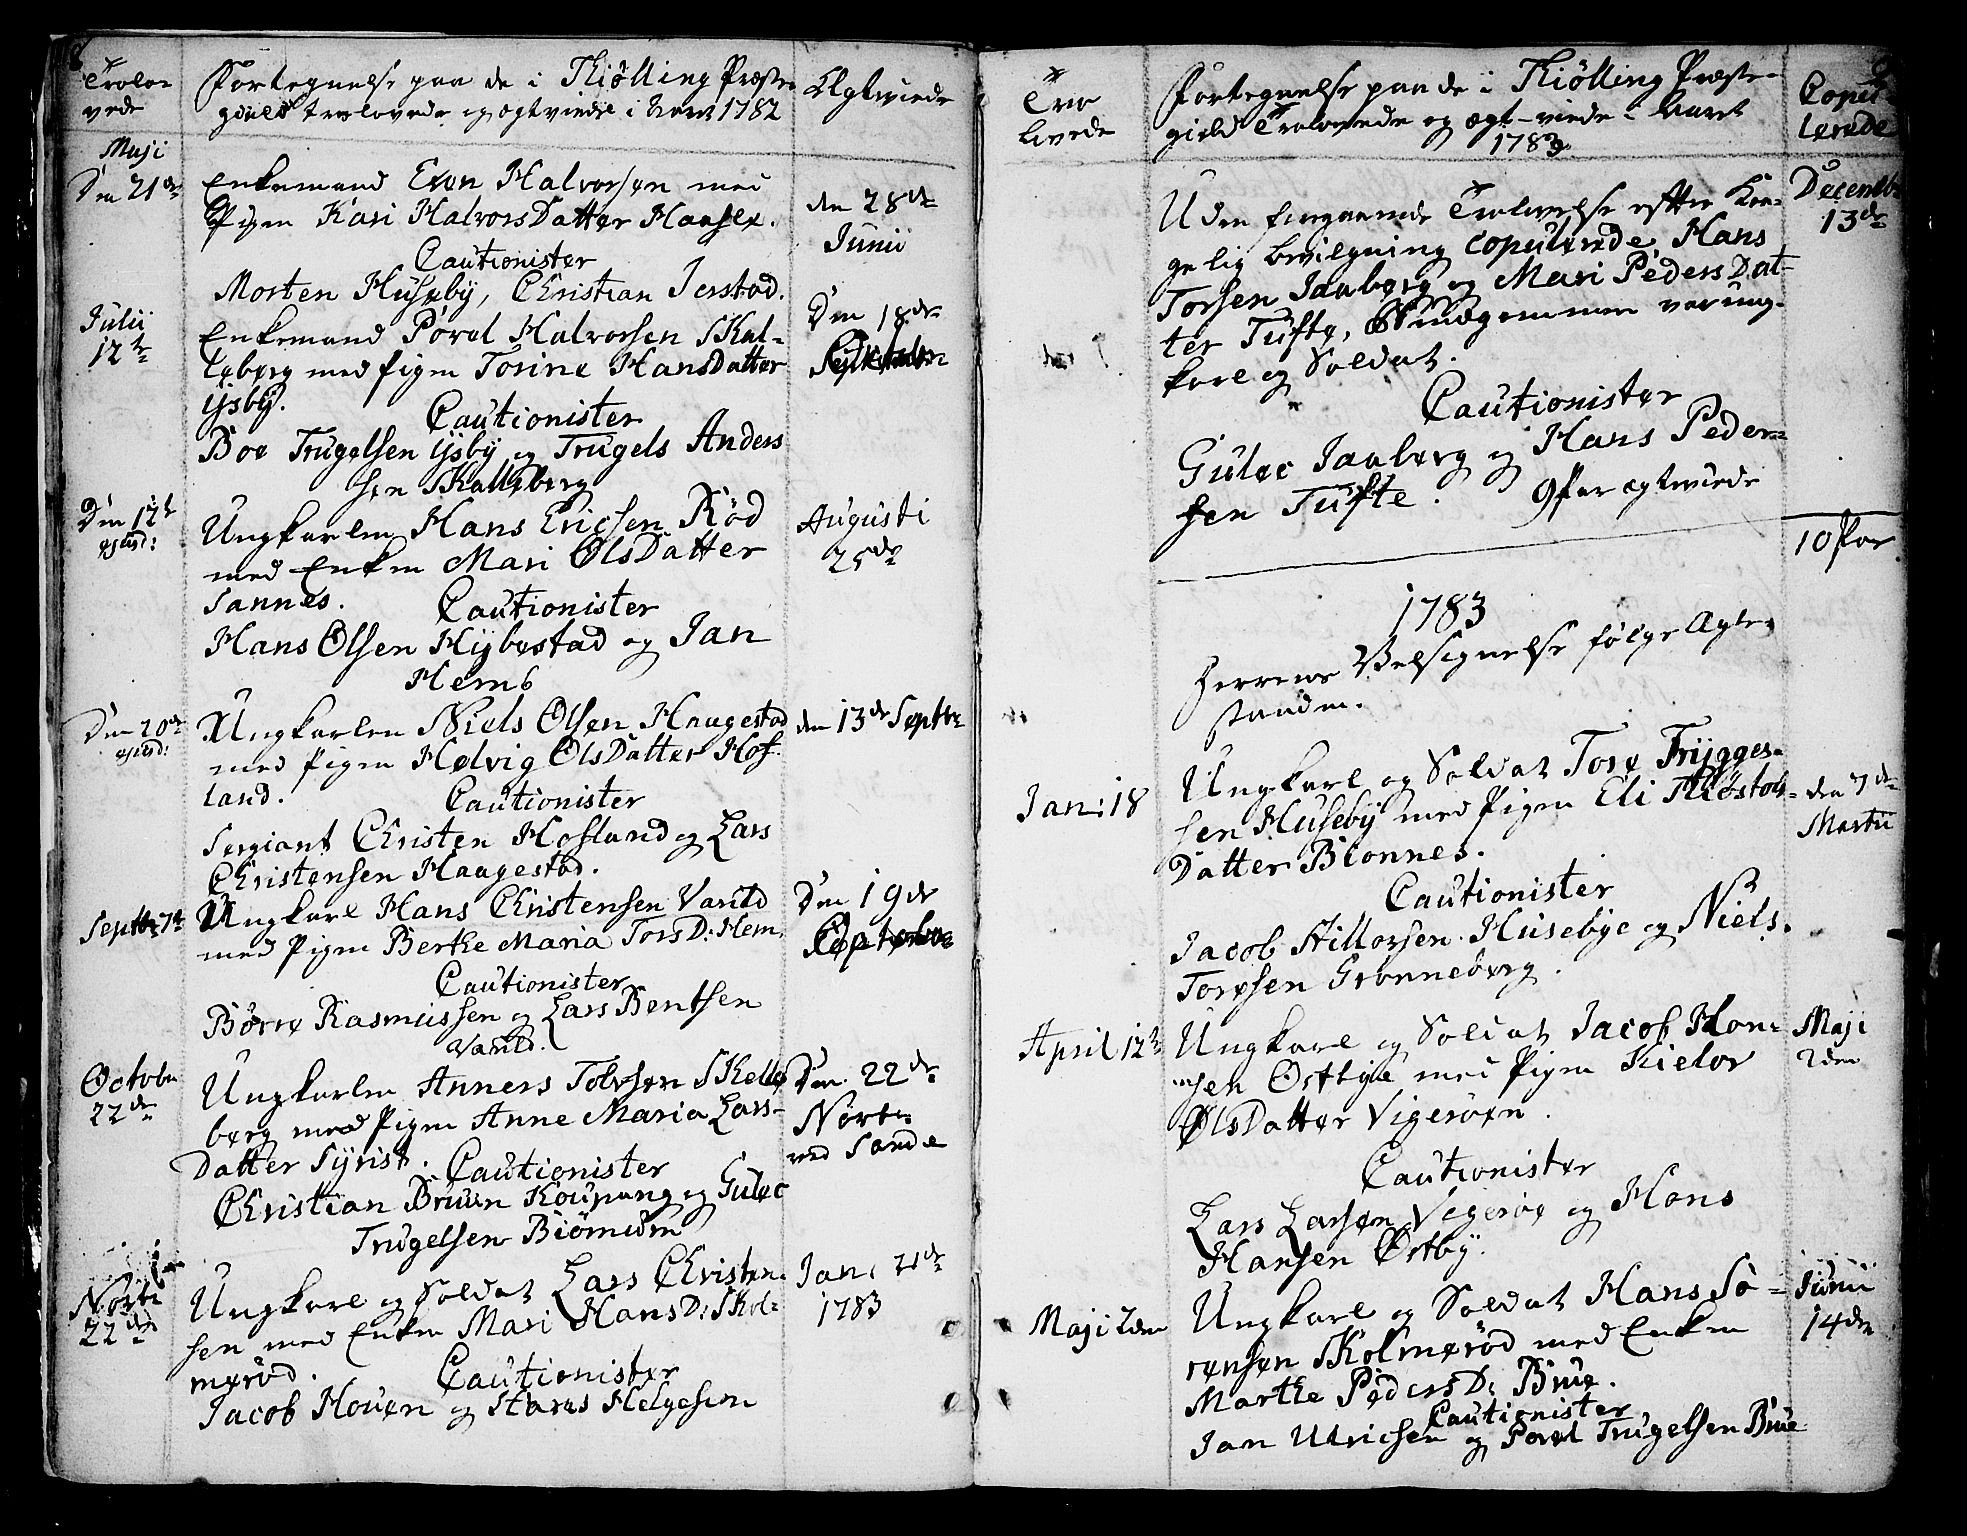 8
Trolo-
vede
Fortegnelse paa de i Kiölling Præste-
gield trolovede og ægtviede i Aaret 1782
Ægtviede
Maji
Den 21de
Enkemand Even Halvorsen med
Pigen Kari HalvorsDatter Haaslæ.
den 28de
Junii
Cautionister
Morten Huseby, Christian Jerstad.
Julii
12te
Enkemand Povel Halvorsen SKal-
leberg med Pigen Torine HansDatter
Ijsbÿ.
Den 18de
Cautionister
Boe Trugelsen Ijsbÿ og Trugels Anders
sen SKalleberg
Den 12t
ejusd:
Ungkarlen Hans Ericsen Röd
med Enken Mari OlsDatter
Sannes.
Augusti
25de
Cautionister
Hans Olsen Hÿbestad og Jan
Hem
Den 20de
ejusd:
Ungkarlen Niels Olsen Haagestad
med Pigen Helvig OlsDatter Hof-
land.
den 13de Septbr
Cautionister
Sergiant Christen Hofland og Lars
Christensen Haagestad.
Septbr 7de
Ungkarl Hans Christensen Varild
med Pigen Berthe Maria TorsD: Hem.
Den 19de
Cautionister
Börre Rasmussen og Lars Bentsen
Varild.
Octobr
22de
Ungkarlen Anners Tolvsen SKalle
berg med Pigen Anne Maria Lars-
Datter Sÿrist.
Den 22de
Novbr
ved Sande
Cautionister
Christian Bruun Koupang og Gulec
Trugelsen Biömum
Novbr
22de
Ungkarl og Soldat Lars Christen-
sen med Enken Mari HansD: SKol-
meröd.
Jan: 21de
1783
Cautionister
Jacob Houen og Hans Helgesen
9
Tro
lovede
Fortegnelse paa de i Kiölling Præste-
gield Trolovede og ægt-viede i Aaret
1783
Copu-
lerede
Uden foregaaende Trolovelse efter Kon-
gelig bevilgning copulerede Hans
Torsen Jaaberg og Mari PedersDat-
ter Tufte, Brudgommen var ung-
karl og Soldat.
Decembr
13de
Cautionister
Gulec Jaaberg og Hans Peder-
sen Tufte.
9 Par ægtviede
10 Par
1783
Herrens Velsignelse fölge Ægte-
standen.
Jan: 18
Ungkarl og Soldat Tore Trÿgges-
sen Husebÿ med Pigen Eli Kiöstols-
Datter Blonnes.
den 7de
Martii
Cautionister
Jacob Hillorsen Husebye og Niels
Toresen Grønneberg.
April 12te
Ungkarl og Soldat Jacob Han-
sen Östbÿe med Pigen Kielov
ØlsDatter Vigeröen.
Maji
2den
Cautionister
Lars Larsen Vigeröe og Hans
Hansen Østbÿ.
Maji 2den
Ungkarl og Soldat Hans Sö-
rensen SKolmeröd med Enken
Marthe PedersD: Brue.
Junii
14de
Cautionister
Jan Ulricsen og Povel Trugelsen Brue